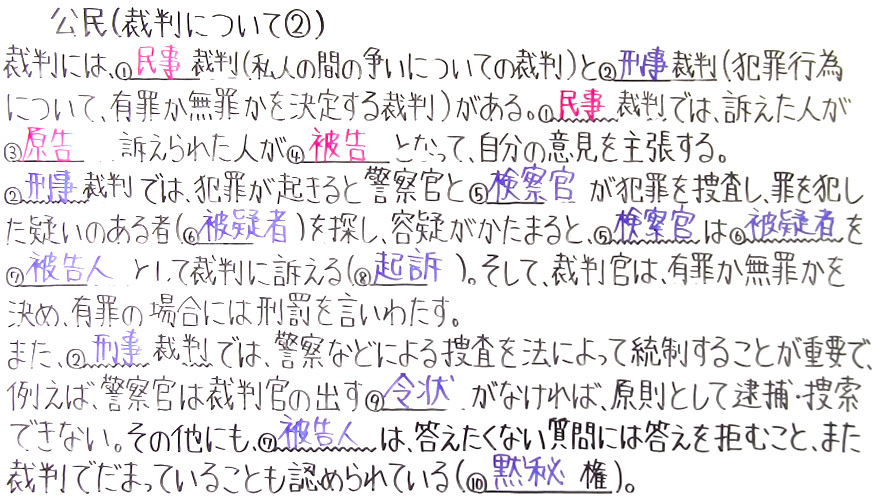 公民(裁判について②)
裁判には、①民事裁判(私人の間の争いについての裁判)と②刑事裁判(犯罪行為
について、有罪か無罪かを決定する裁判)がある。①民事裁判では、訴えた人が
③原告 訴えられた人が④被告 となって、自分の意見を主張する。
②刑事裁判では、犯罪が起きると警察官と⑤検察官 が犯罪を捜査し、罪を犯し
た疑いのある者(⑥被疑者)を探し、容疑がかたまると、⑤検察官は⑥被疑者を
⑦被告人 として裁判に訴える(⑧起訴 )。そして、裁判官は、有罪か無罪かを
決め、有罪の場合には刑罰を言いわたす。
また、②刑事裁判では、警察などによる捜査を法によって統制することが重要で、
例えば、警察官は裁判官の出す⑨令状 がなければ、原則として逮捕・捜索
できない。その他にも、⑦被告人 は、答えたくない質問には答えを拒むこと、また
裁判でだまっていることも認められている(⑩黙秘 権)。